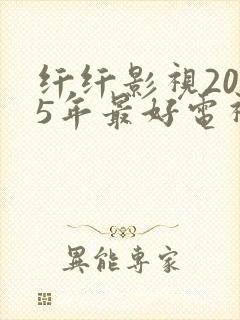 纤纤影視20
5年最好電視
異能專家